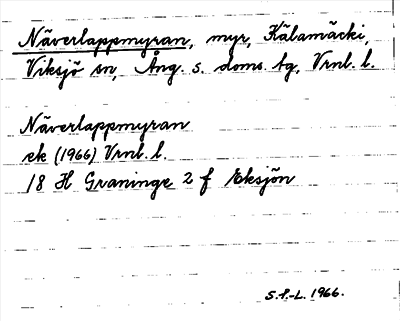 Näverlappmyran, myr, Kälamäcki,
Viksjö sn, Ång. s. doms. tg, Vrnl. l.
Näverlappmyran
ek (1966) Vrnl. l.
18 H Graninge 2 f Eksjön
S.P.-L. 1966.